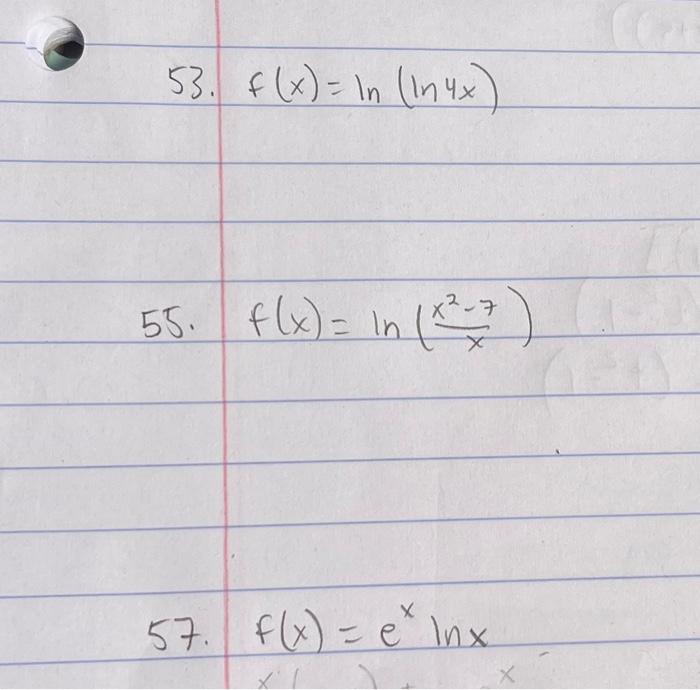 53. f(x) = ln (ln 4x)
55. f(x) = ln (x²-7/x)
57. f(x) = eˣ lnx